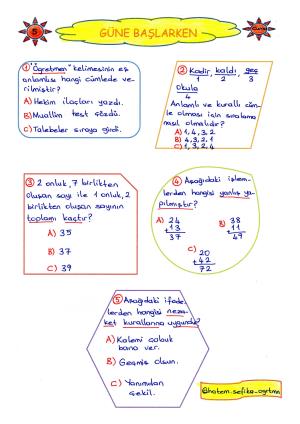 5
GÜNE BAŞLARKEN
① "Öğretmen" kelimesinin eş
anlamlısı hangi cümlede ve-
rilmiştir?
A) Hekim ilaçları yazdı.
B) Muallim test çözdü.
C) Talebeler sıraya girdi.
② Kadir, kaldı, geç
1 2 3
Okula
4
Anlamlı ve kurallı cüm-
le olması için sıralama
nasıl olmalıdır?
A) 1, 4, 3, 2
B) 1, 4, 2, 3
C) 1, 3, 2, 4
③ 2 onluk, 7 birlikten
oluşan sayı ile 1 onluk, 2
birlikten oluşan sayının
toplamı kaçtır?
A) 35
B) 37
C) 39
④ Aşağıdaki işlem-
lerden hangisi yanlış ya-
pılmıştır?
A) 24 B) 38
+13 +11
37 49
C) 20
+42
72
⑤ Aşağıdaki ifade-
lerden hangisi neza-
ket kurallarına uygundur?
A) Kalemi çabuk
bana ver.
B) Geçmiş olsun.
C) Yanımdan
çekil.
@hatem.sefika_ogrtmn